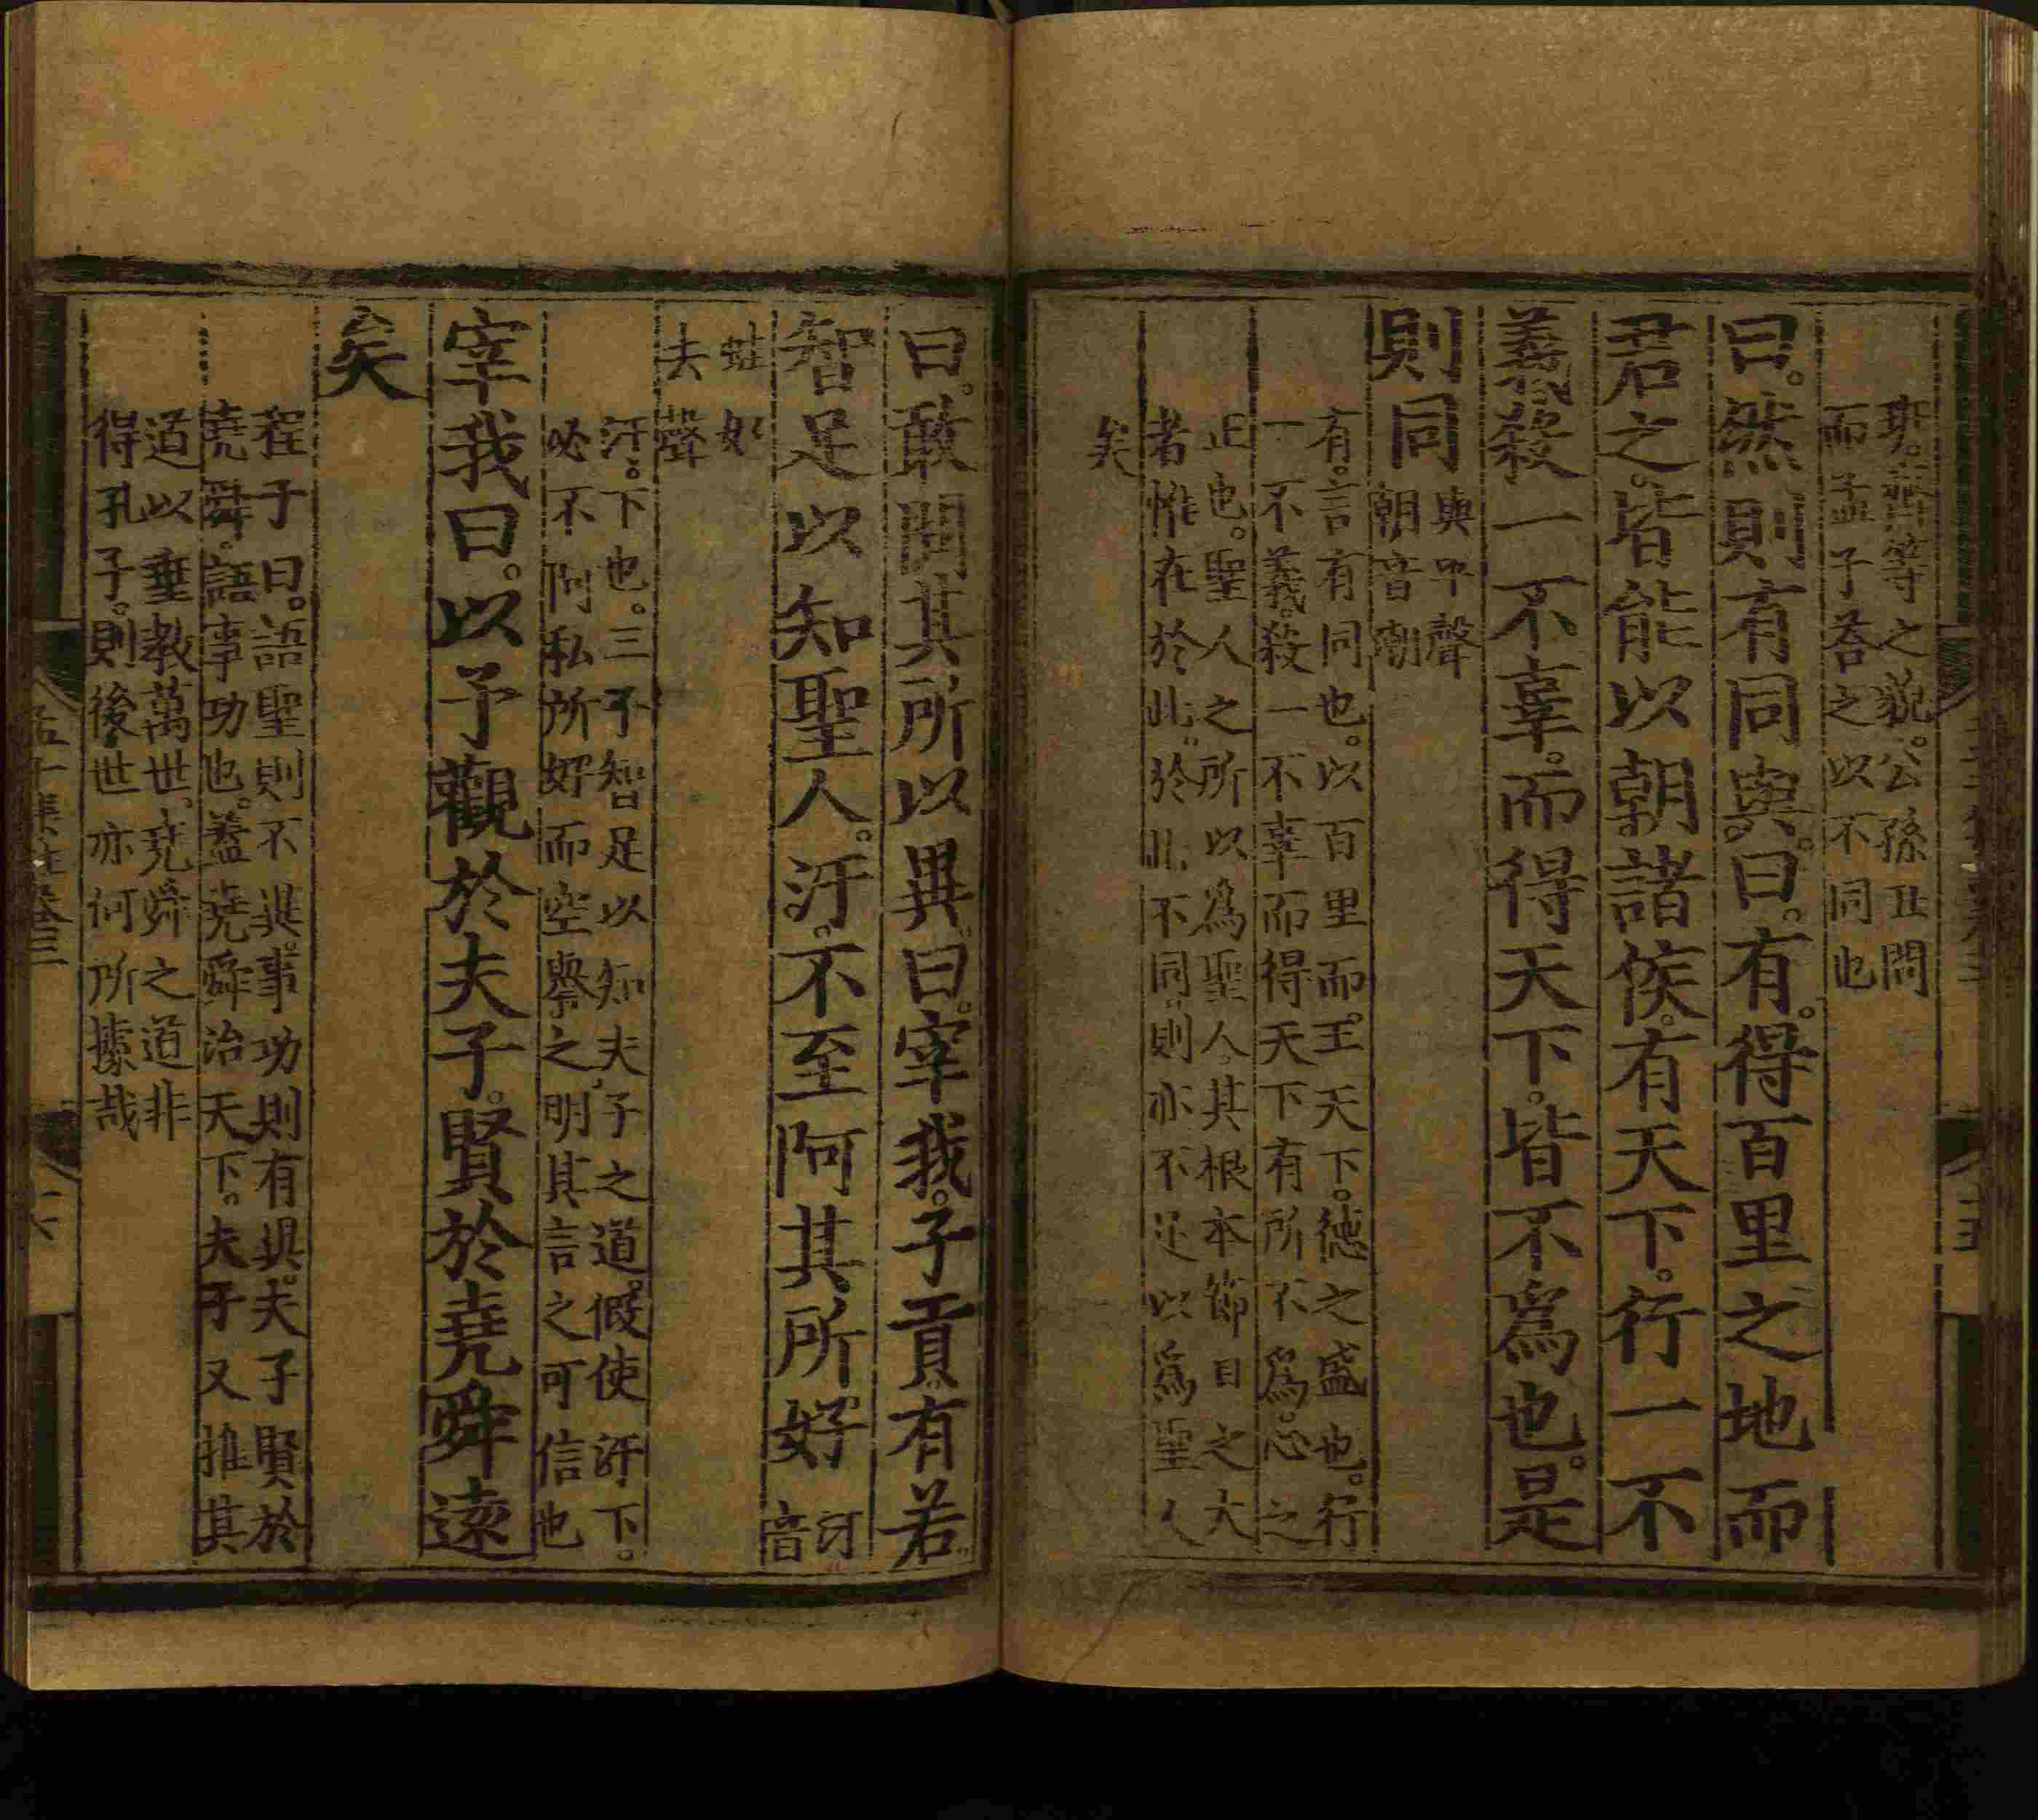 聖。齊等之貌。公孫丑問
而孟子荅之以不同也
曰。然則有同與。曰。有。得百里之地而
君之。皆能以朝諸侯。有天下。行一不
義。殺一不辜。而得天下。皆不爲也。是
則同
與平聲
朝音潮
有。言有同也。以百里而王天下。德之盛也。行
一不義。殺一不辜而得天下有所不爲。心之
正也。聖人之所以爲聖人。其根本節目之大
者惟在於此。於此不同。則亦不足以爲聖人
矣
曰。敢問其所以異。曰。宰我。子貢。有若。
智足以知聖人。汙。不至阿其所好
汙音
蛙好
去聲
汙。下也。三子智足以知夫子之道。假使汙下。
必不阿私所好而空譽之明其言之可信也
宰我曰。以予觀於夫子。賢於堯舜遠
矣
程子曰。語聖則不異。事功則有異。夫子賢於
堯舜。語事功也。蓋堯舜治天下。夫子又推其
道以垂教萬世。堯舜之道非
得孔子。則後世亦何所據哉
孟子集註卷三
十六